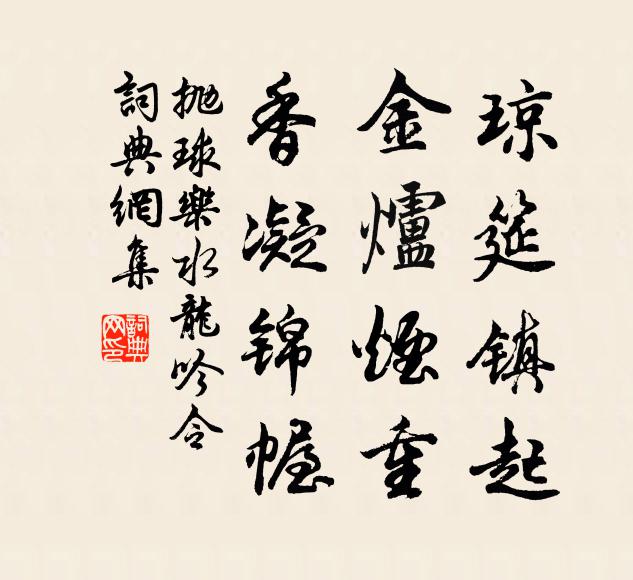 琼筵镇起
金爐煙重
香凝锦幄
抛球樂水龍吟令
詞典網集
詞典
网印